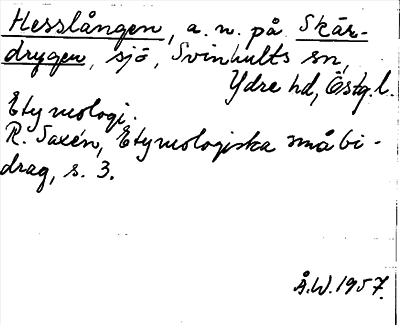 Hesslången, a. n. på Skär-
drygen, sjö, Svinhults sn,
Ydre hd, Östg. l.
Etymologi.
R. Saxén, Etymologiska småbi-
drag, s. 3.
Å. W. 1957.